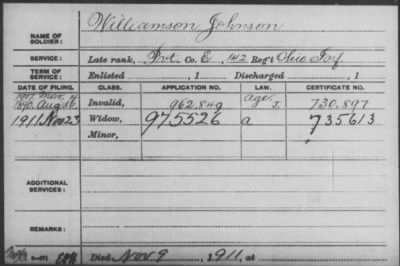 NAME OF SOLDIER: Williamson Johnson
SERVICE: Late rank, Pvt. Co. E, 142 Reg't Ohio Inf.
TERM OF SERVICE: Enlisted , 1 Discharged , 1
DATE OF FILING. CLASS. APPLICATION NO. LAW. CERTIFICATE NO.
1907 Mar. age
1890 Aug 16. Invalid, 962.849 J. 730.897
1911 Nov 23 Widow, 975526 a 735613
Minor,
ADDITIONAL SERVICES:
REMARKS:
Died Nov 9 , 1911, at